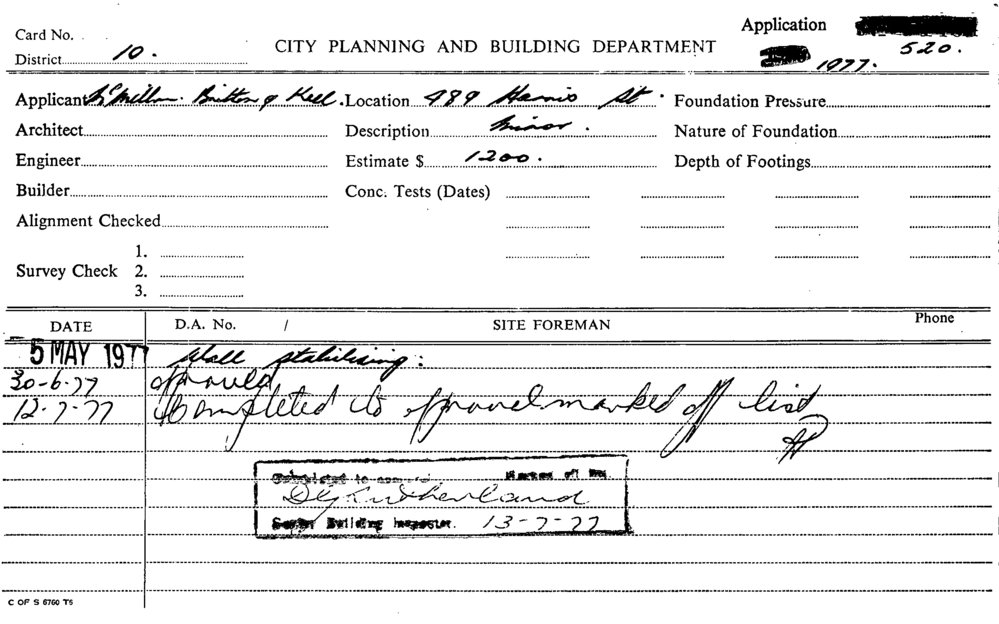 Card No.
Application
520.
District 10.
CITY PLANNING AND BUILDING DEPARTMENT
1977.
Applicant McMillan. Britton & Kell. Location 489 Harris St. Foundation Pressure
Architect Description Minor. Nature of Foundation
Engineer Estimate $ 1200. Depth of Footings
Builder Conc. Tests (Dates)
Alignment Checked
1.
Survey Check 2.
3.
DATE D.A. No. / SITE FOREMAN Phone
5 MAY 1977 Wall stabilising:
30-6-77 approved
12-7-77 Completed to approval marked off list
Completed to approval Marked off
Sutherland
Senior Building Inspector. 13-7-77
C OF S 6760 T6